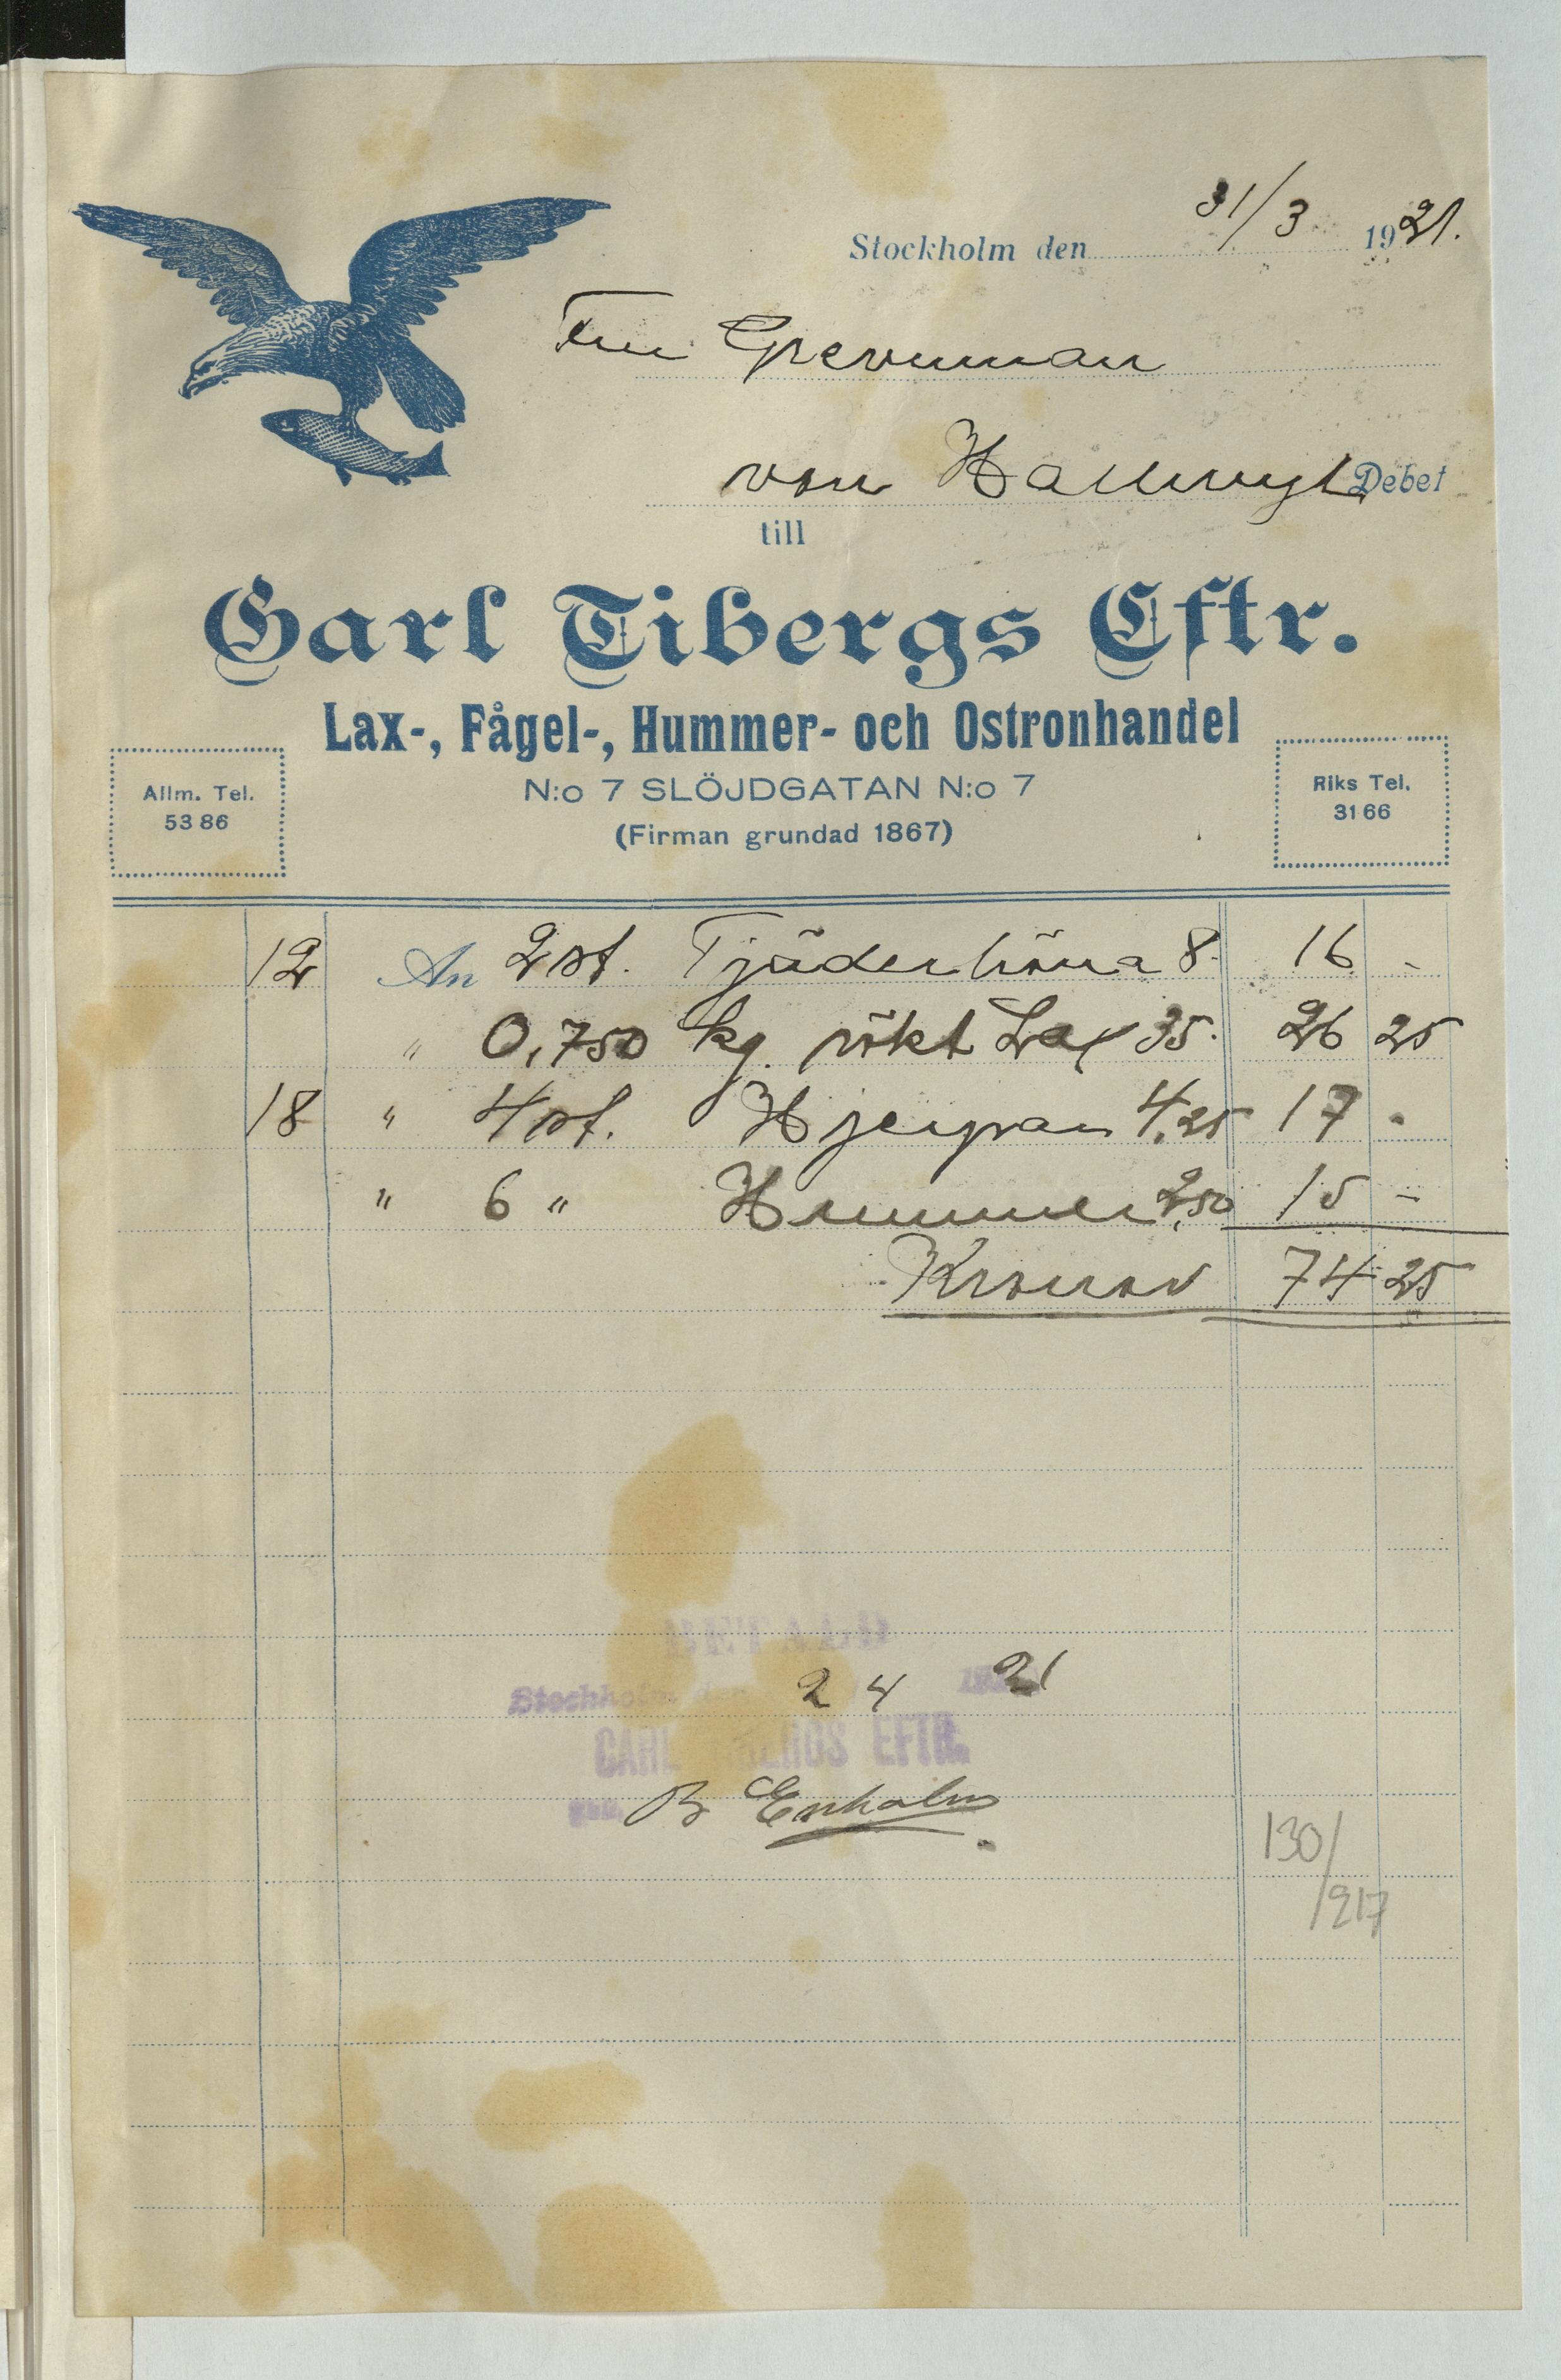 Stockholm den 31/3 1921.
Fru Grevinnan
von Hallwyl Debet
till
Carl Tibergs Eftr.
Lax-, Fågel-, Hummer- och Ostronhandel
N:o 7 SLÖJDGATAN N:o 7
(Firman grundad 1867)
Allm. Tel.
53 86
Riks Tel.
31 66
12 An 2 st. Tjäderhöna 8. 16 -
" 0,750 kg. rökt Lax 35. 26 25
18 " 4 st. Hjerpar 4,25 17 -
" 6 " Hummer 2,50 15 -
Kronor 74 25
BETALD
Stockholm den 2 4 21
CARL TIBERGS EFTR.
130/
/217